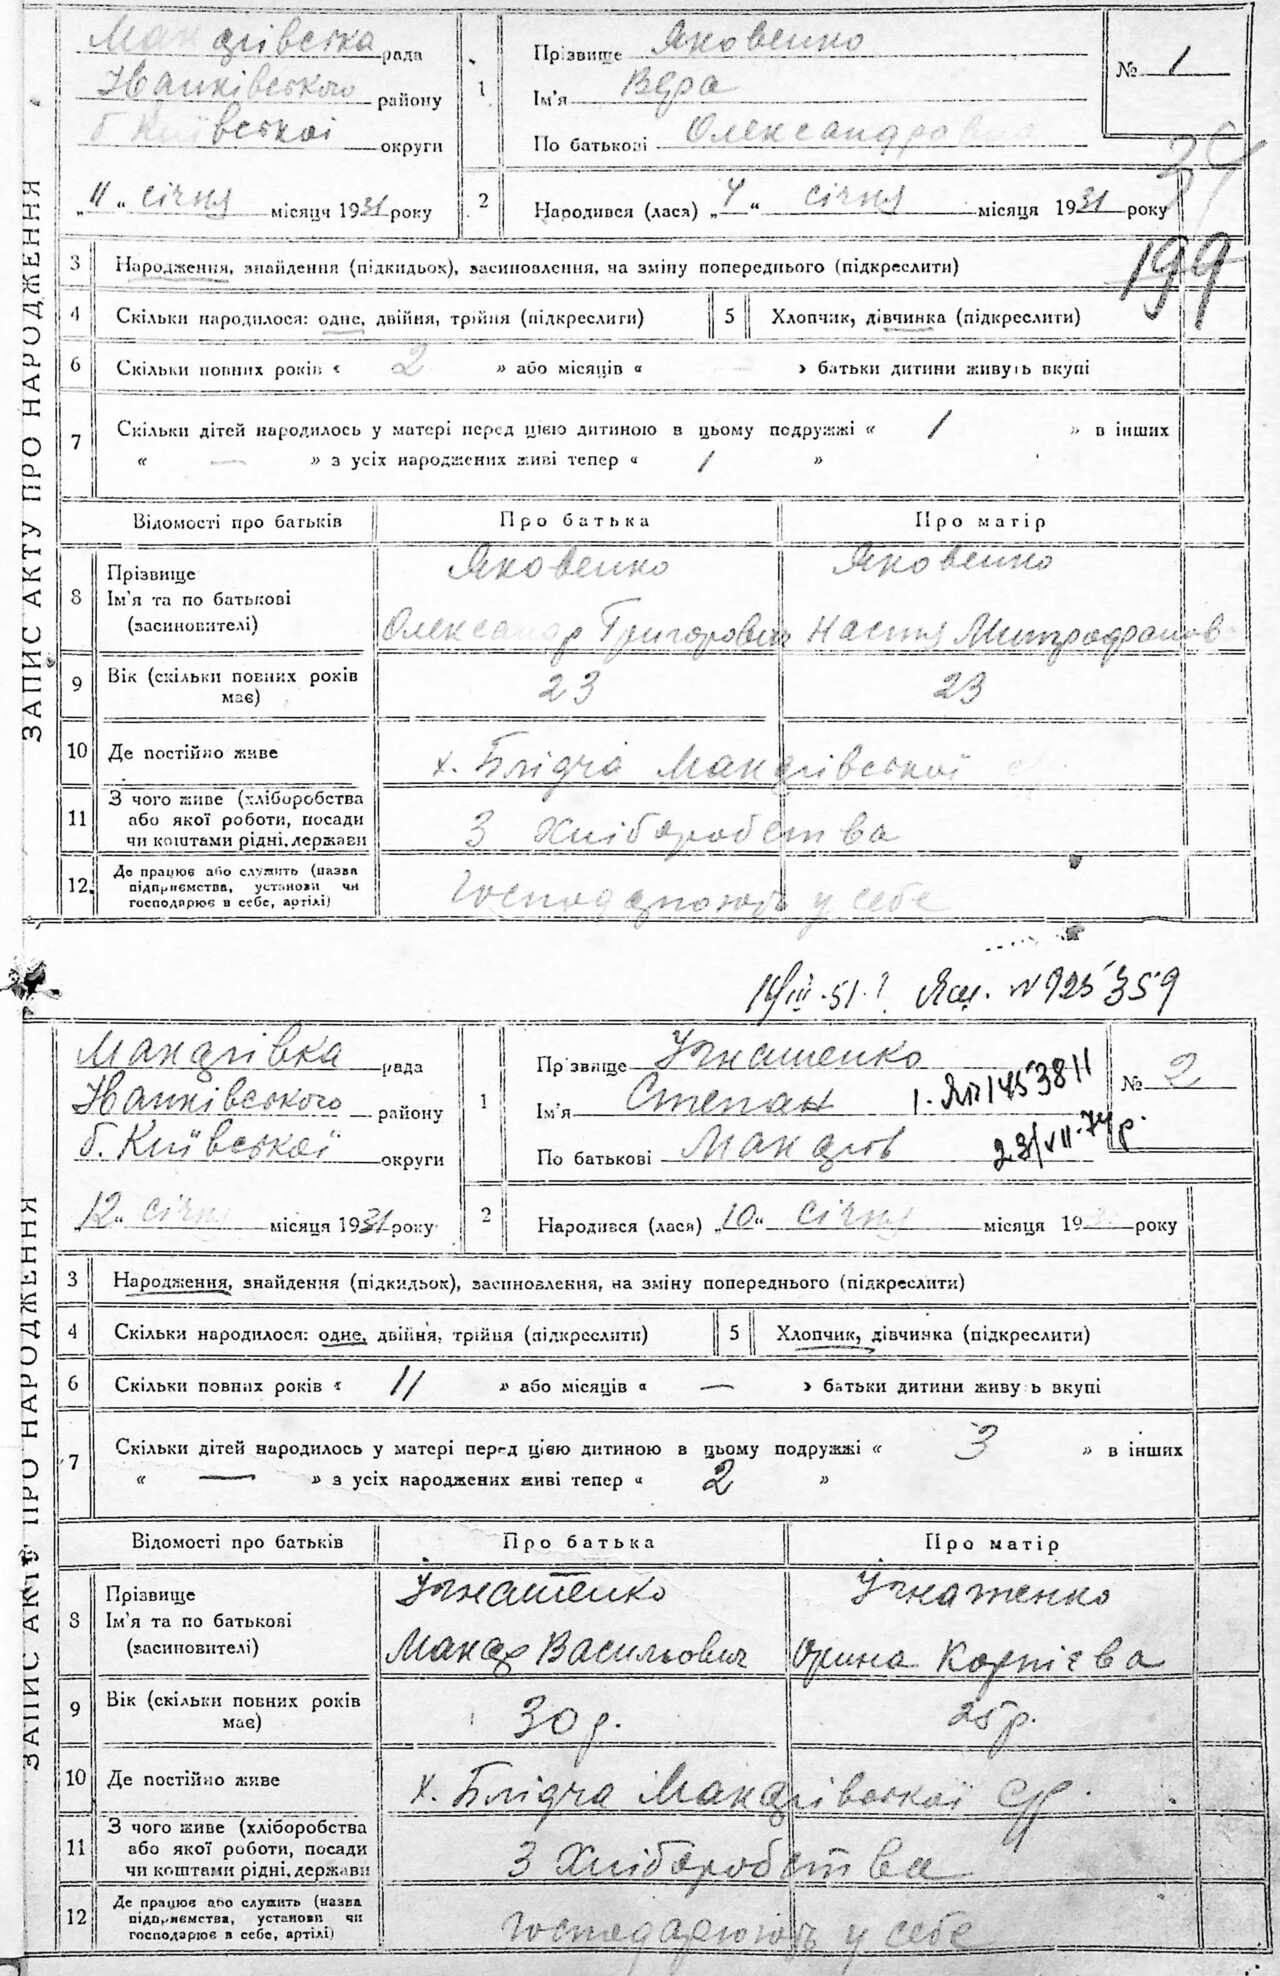 ЗАПИС АКТУ ПРО НАРОДЖЕННЯ
Макарівська рада
Іванківського району
б. Київської округи
„11“ січня місяця 1931 року
1
Прізвище Яковенко
Ім'я Вєра
По батькові Олександровна
№ 1
2
Народився (лася) „4“ січня місяця 1931 року
199
3 Народження, знайдення (підкидьок), засиновлення, на зміну попереднього (підкреслити)
4 Скільки народилося: одне, двійня, трійня (підкреслити) 5 Хлопчик, дівчинка (підкреслити)
6 Скільки повних років « 2 » або місяців « — » батьки дитини живуть вкупі
7 Скільки дітей народилось у матері перед цією дитиною в цьому подружжі « 1 » в інших
« — » з усіх народжених живі тепер « 1 »
Відомості про батьків Про батька Про матір
8 Прізвище Ім'я та по батькові (засиновителі) Яковенко Яковенко
Олександр Григорович Настя Митрофанов
9 Вік (скільки повних років має) 23 23
10 Де постійно живе х. Блідча Макарівської
11 З чого живе (хліборобства або якої роботи, посади чи коштами рідні, держави З Хліборобства
12. Де працює або служить (назва підприємства, установи чи господарює в себе, артілі) Господарюють у себе
№ 925359
ЗАПИС АКТУ ПРО НАРОДЖЕННЯ
Макарівка рада
Іванківського району
б. Київської округи
„12“ січня місяця 1931 року
1
Прізвище Ігнатенко
Ім'я Степан
По батькові Макарів
№ 2
1453811
23/VII-74 р.
2
Народився (лася) „10“ січня місяця 19 року
3 Народження, знайдення (підкидьок), засиновлення, на зміну попереднього (підкреслити)
4 Скільки народилося: одне, двійня, трійня (підкреслити) 5 Хлопчик, дівчинка (підкреслити)
6 Скільки повних років « 11 » або місяців « — » батьки дитини живуть вкупі
7 Скільки дітей народилось у матері перед цією дитиною в цьому подружжі « 3 » в інших
« — » з усіх народжених живі тепер « 2 »
Відомості про батьків Про батька Про матір
8 Прізвище Ім'я та по батькові (засиновителі) Ігнатенко Ігнатенко
Макар Васильович Орина Корнієва
9 Вік (скільки повних років має) 30 р. 25 р.
10 Де постійно живе х. Блідча Макарівської с/р.
11 З чого живе (хліборобства або якої роботи, посади чи коштами рідні, держави З Хліборобства
12 Де працює або служить (назва підприємства, установи чи господарює в себе, артілі) Господарюють у себе